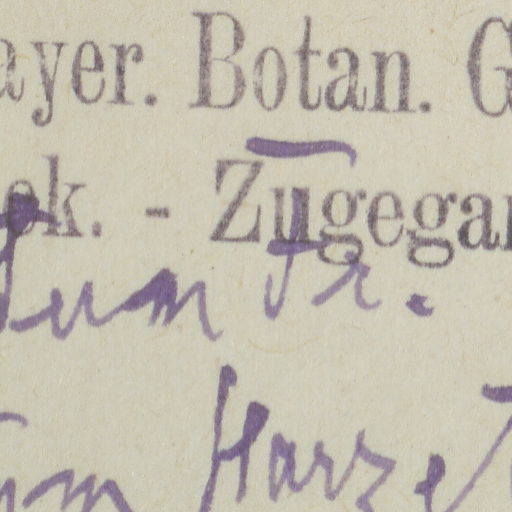 ayer. Botan. G
ek. - Zugegan
um Fr.
um Harz